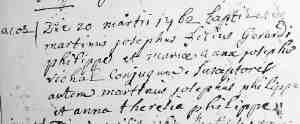 Die 20 martii 17 baptizatus
martinus josephus filius Gerardi
philippe et mariæ annæ josephæ
conjugum: susceptores
autem martinus josephus philippe
et anna theresia philippe